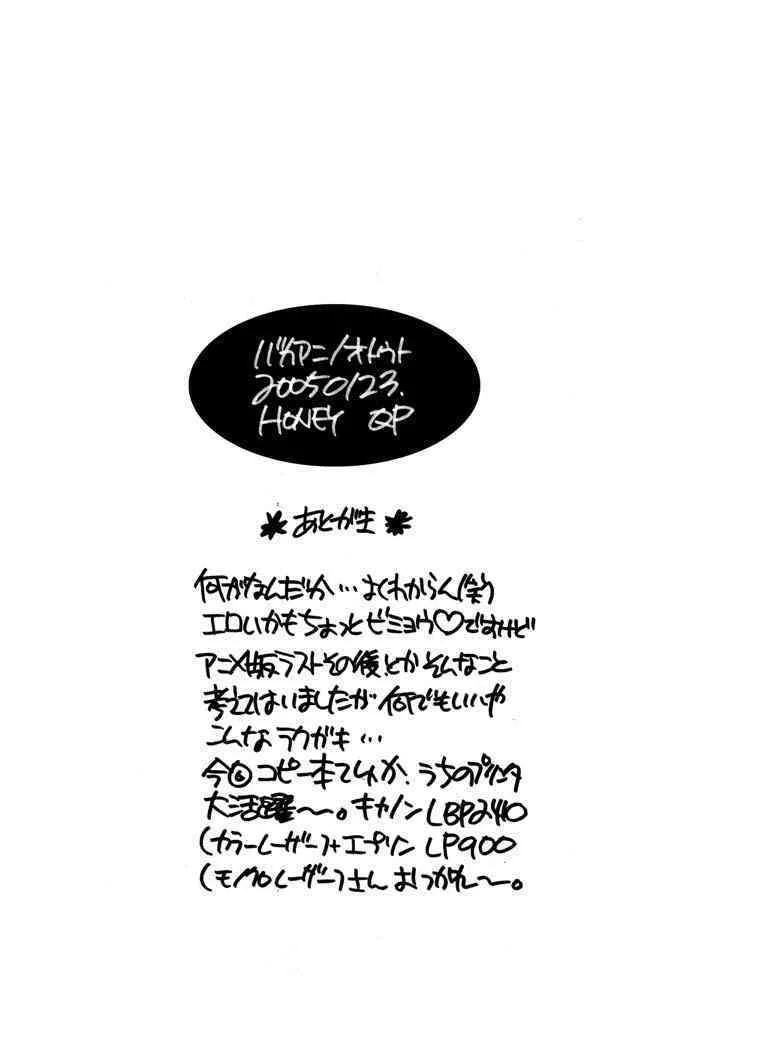 バカアニノオトウト
20050123.
HONEY QP
*あとが生*
何がなんだか…よくわからん(笑)
エロいかもちょっとビミョウ♡ですけど
アニメ版ラストその後とかそんなこと
考えてはいましたが何でもいいや
こんなラクガキ…
今回コピー本てしゅか、うちのプリンタ
大活躍〜。キヤノンLBP2410
(カラーレーザー)+エプソン LP900
(モノクロレーザー)さん おつかれ〜。